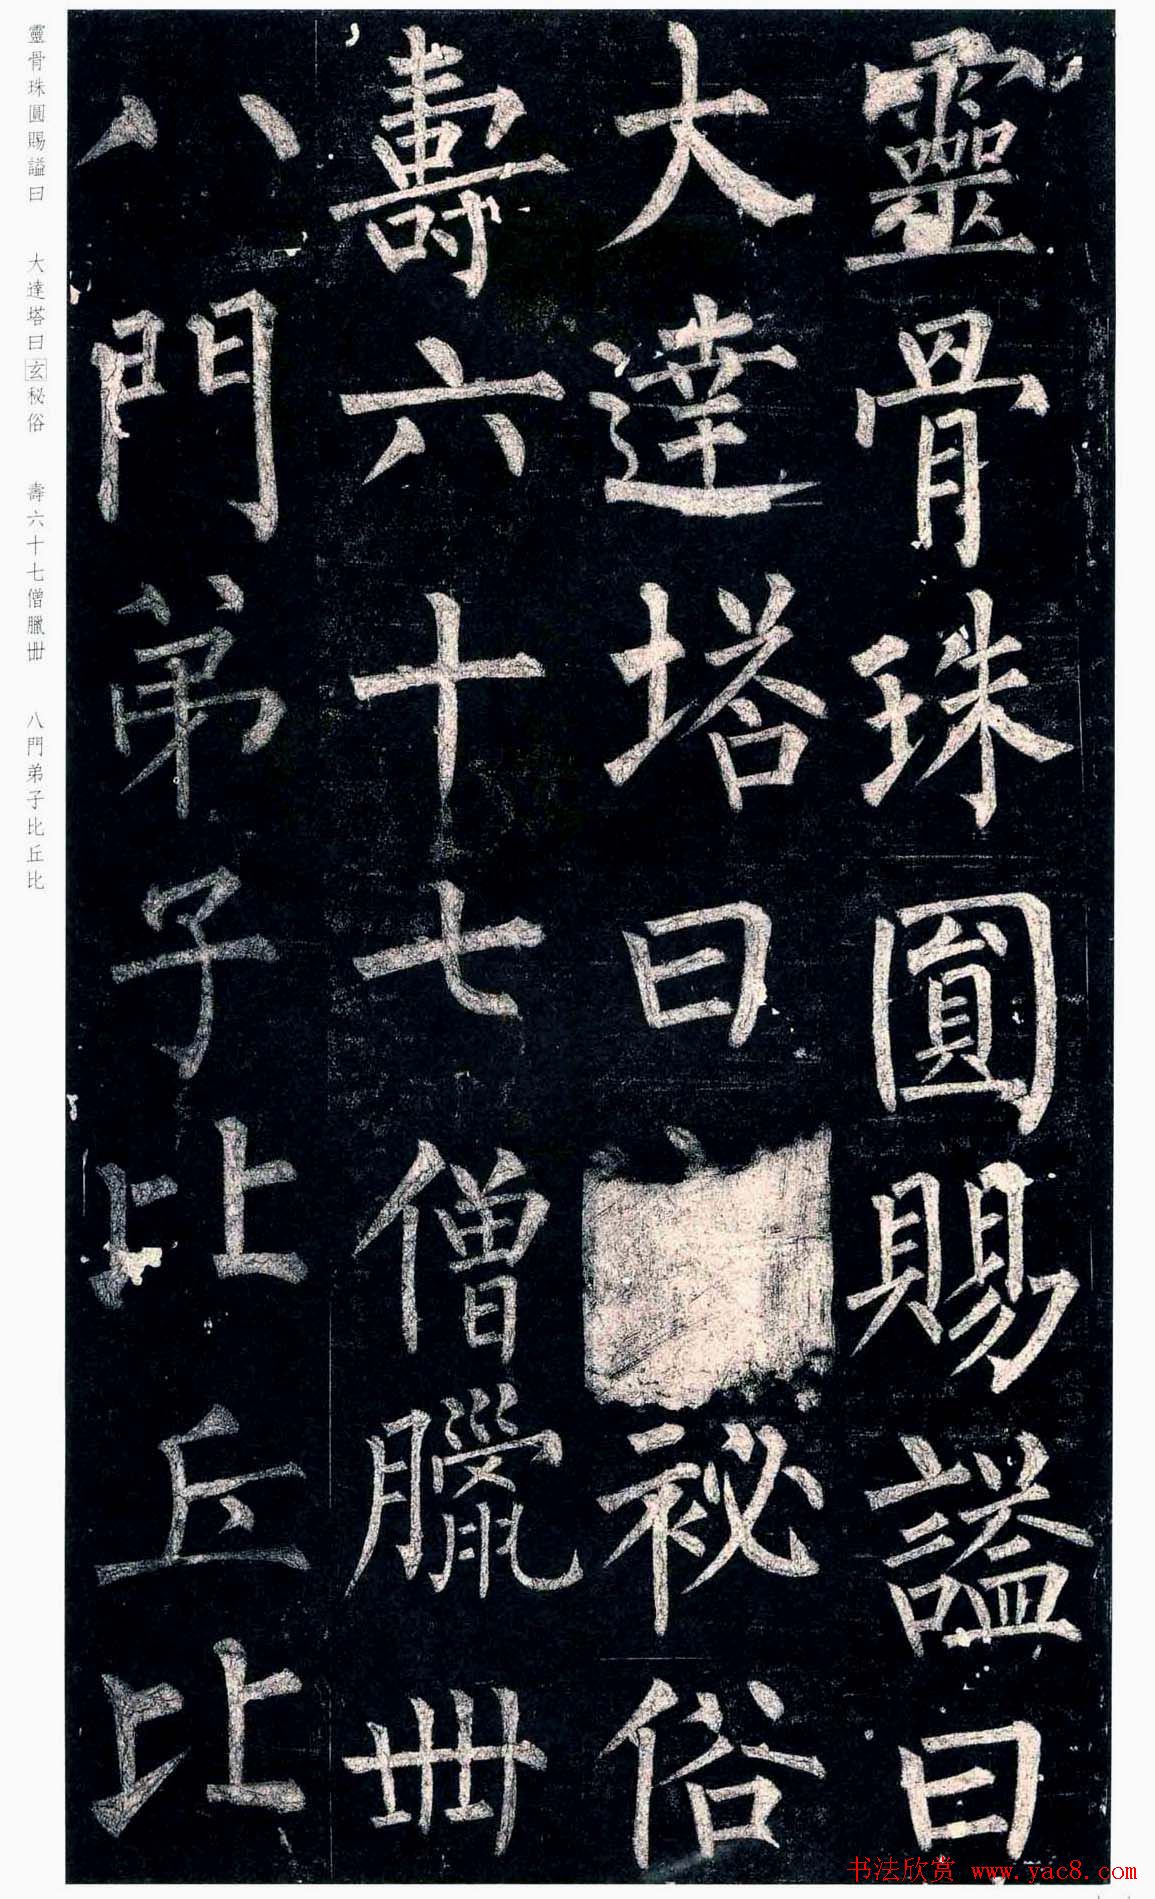 靈骨珠圓賜謚曰
大達塔曰秘俗
壽六十七僧臘卌
八門弟子比丘比
靈骨珠圓賜謚曰 大達塔曰玄秘俗 壽六十七僧臘卌 八門弟子比丘比
书法欣赏 www.yac8.com